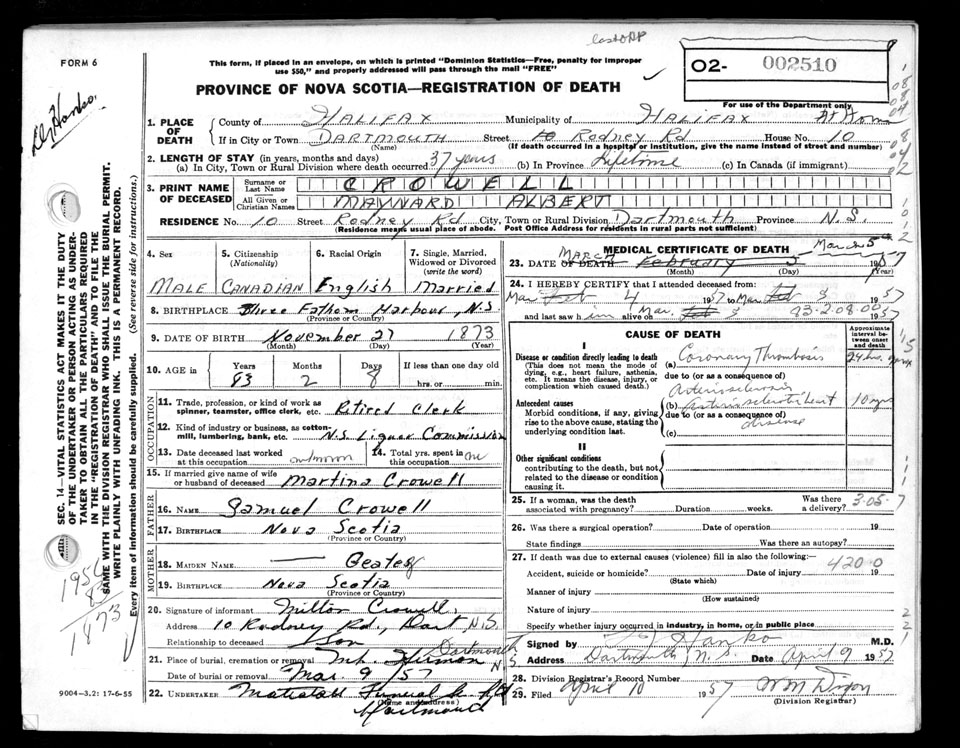 FORM 6
This form, if placed in an envelope, on which is printed "Dominion Statistics—Free, penalty for improper
use $50," and properly addressed will pass through the mail "FREE"
O2- 002510
For use of the Department only
PROVINCE OF NOVA SCOTIA—REGISTRATION OF DEATH
1. PLACE OF DEATH
County of HALIFAX Municipality of HALIFAX At Home
If in City or Town DARTMOUTH Street Rodney Rd House No. 10
(Name) (If death occurred in a hospital or institution, give the name instead of street and number)
2. LENGTH OF STAY (in years, months and days)
(a) In City, Town or Rural Division where death occurred 37 years (b) In Province Lifetime (c) In Canada (if immigrant)
3. PRINT NAME OF DECEASED
Surname or Last Name CROWELL
All Given or Christian Names MAYNARD ALBERT
RESIDENCE No. 10 Street Rodney Rd City, Town or Rural Division Dartmouth Province N.S.
(Residence means usual place of abode. Post Office Address for residents in rural parts not sufficient)
4. Sex 5. Citizenship (Nationality) 6. Racial Origin 7. Single, Married, Widowed or Divorced (write the word)
MALE CANADIAN English Married
8. BIRTHPLACE Three Fathom Harbour, N.S
(Province or Country)
9. DATE OF BIRTH November 27 1873
(Month) (Day) (Year)
10. AGE in Years Months Days If less than one day old
83 2 8 hrs. or min.
OCCUPATION
11. Trade, profession, or kind of work as
spinner, teamster, office clerk, etc. Retired Clerk
12. Kind of industry or business, as cotton-
mill, lumbering, bank, etc. N.S. Liquor Commission
13. Date deceased last worked at this occupation unknown 14. Total yrs. spent in this occupation
15. If married give name of wife
or husband of deceased Martina Crowell
FATHER
16. NAME Samuel Crowell
17. BIRTHPLACE Nova Scotia
(Province or Country)
MOTHER
18. MAIDEN NAME — Geates
19. BIRTHPLACE Nova Scotia
(Province or Country)
20. Signature of informant Milton Crowell
Address 10 Rodney Rd., Dart N.S.
Relationship to deceased Son
21. Place of burial, cremation or removal Mt. Hermon Dartmouth N S
Date of burial or removal Mar. 9 / 57
22. UNDERTAKER Funeral
(Name and address)
Dartmouth
MEDICAL CERTIFICATE OF DEATH
March 5th
23. DATE OF DEATH MARCH February 5 1957
(Month) (Day) (Year)
24. I HEREBY CERTIFY that I attended deceased from:
Mar Feb 4 1957 to Mar Feb 5 1957
and last saw him alive on Mar. Feb 5 1957
93-2-08-00
CAUSE OF DEATH
Approximate interval between onset and death
I
Disease or condition directly leading to death (a) Coronary Thrombosis 24 hrs.
(This does not mean the mode of
dying, e.g., heart failure, asthenia,
etc. It means the disease, injury, or
complication which caused death.)
due to (or as a consequence of)
Arteriosclerosis
Antecedent causes (b) arteriosclerotic heart disease 10 yrs
Morbid conditions, if any, giving
rise to the above cause, stating the
underlying condition last.
due to (or as a consequence of)
(c)
II
Other significant conditions
contributing to the death, but not
related to the disease or condition
causing it.
25. If a woman, was the death
associated with pregnancy? Duration weeks. Was there a delivery?
3-05-7
26. Was there a surgical operation? Date of operation 19
State findings Was there an autopsy?
27. If death was due to external causes (violence) fill in also the following:
4200
Accident, suicide or homicide? Date of injury 19
(State which)
Manner of injury
(How sustained)
Nature of injury
Specify whether injury occurred in industry, in home, or in public place
Signed by Hanko M.D.
Address Dartmouth, N.S. Date April 9 1957
28. Division Registrar's Record Number
29. Filed April 10 1957 Wm Dixon
(Division Registrar)
SEC. 14—VITAL STATISTICS ACT MAKES IT THE DUTY
OF THE UNDERTAKER OR PERSON ACTING AS UNDER-
TAKER TO OBTAIN ALL THE PARTICULARS REQUIRED
IN THE "REGISTRATION OF DEATH" AND TO FILE THE
SAME WITH THE DIVISION REGISTRAR WHO SHALL ISSUE THE BURIAL PERMIT.
WRITE PLAINLY WITH UNFADING INK. THIS IS A PERMANENT RECORD.
Every item of information should be carefully supplied. (See reverse side for instructions.)
Dr Hanko.
1956
83
1873
9004-3.2: 17-6-55